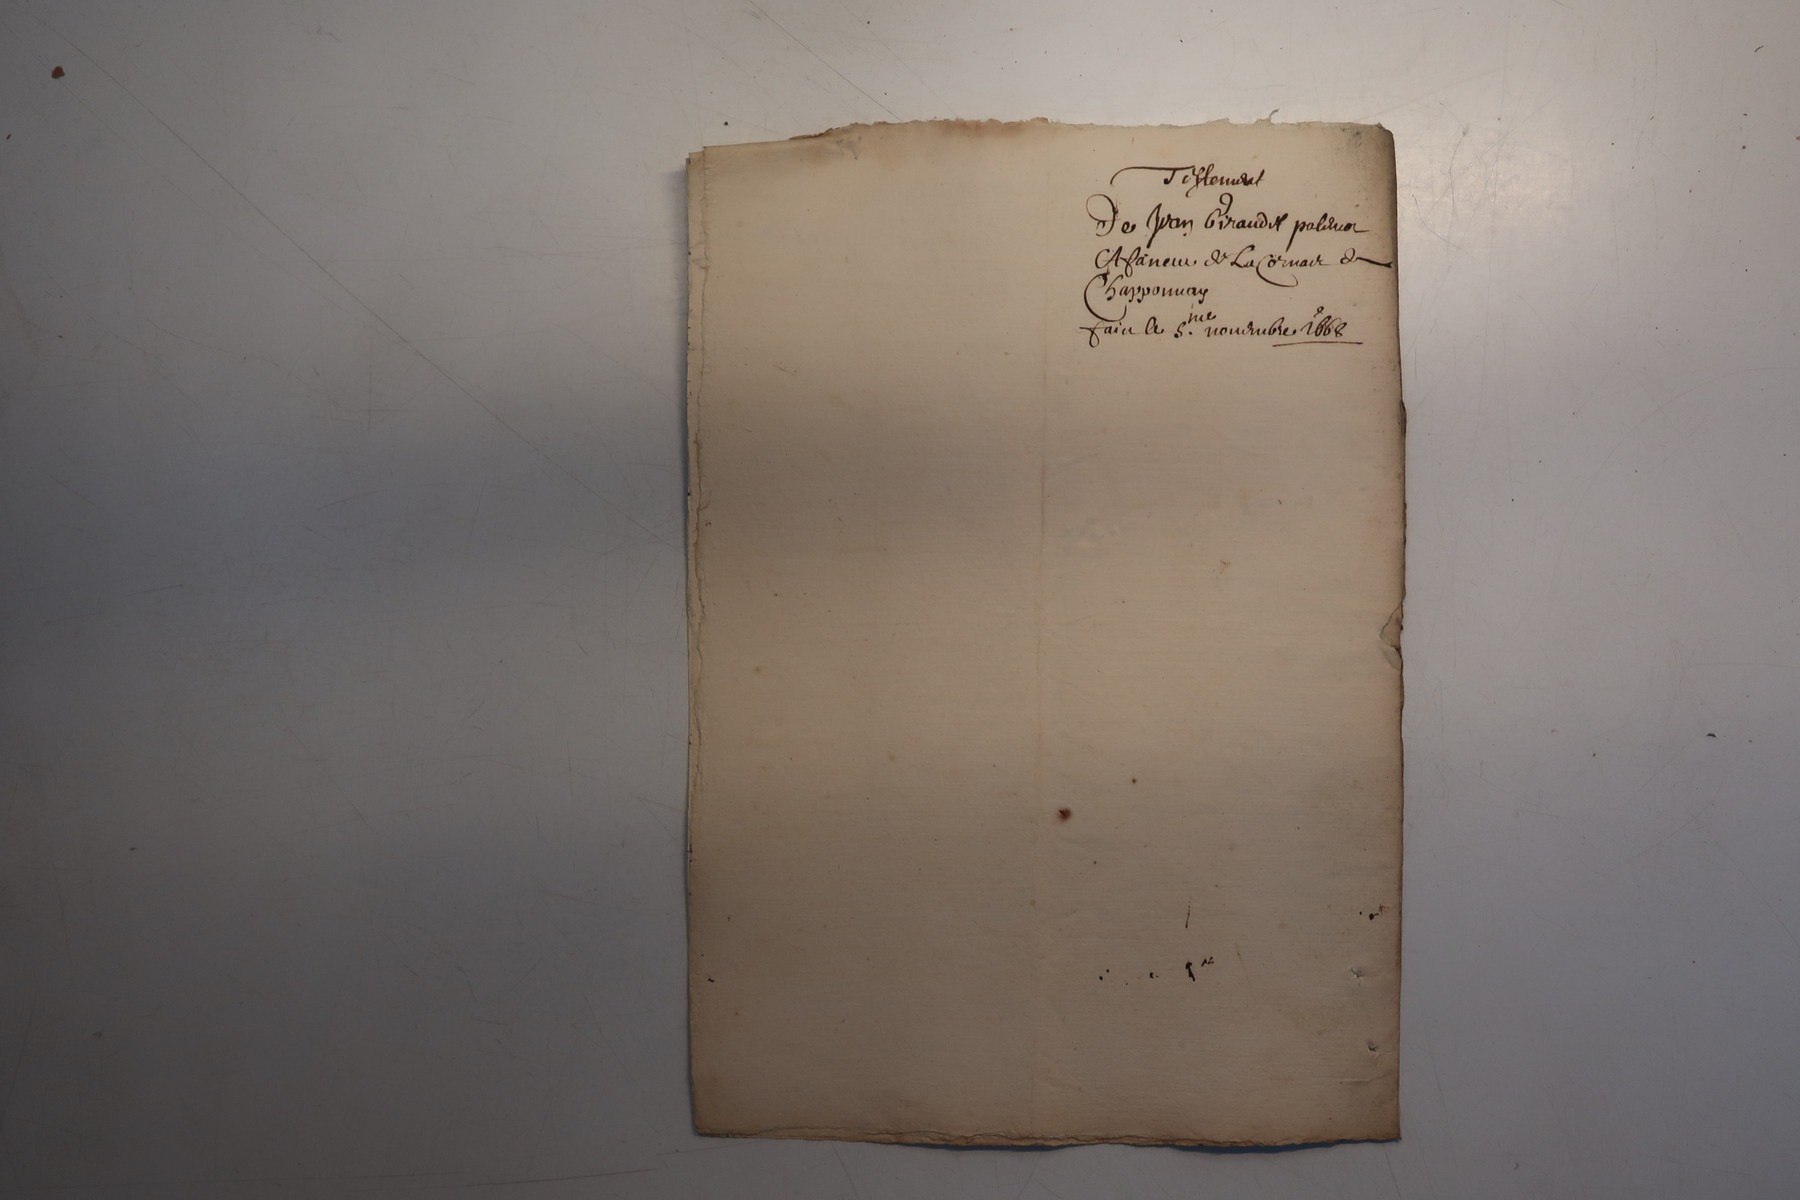 Testement
De Jean Giraudet
Affaneur de La Cornaz de
Chapponnay
faict le 5.me novembre 1668